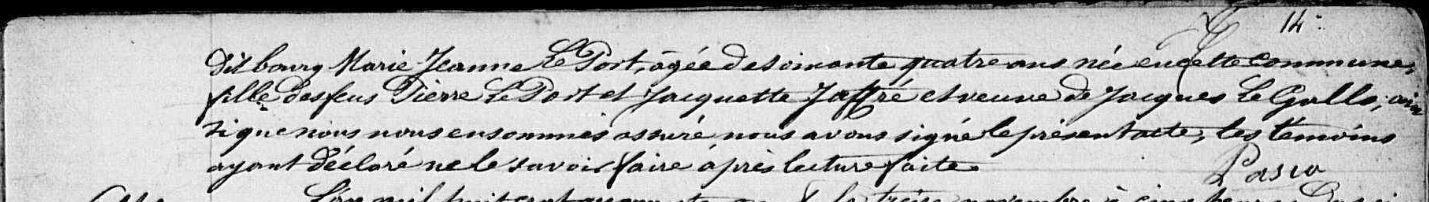 14.
dit bourg Marie Jeanne Le Port, agée de soixante quatre ans née en cette commune,
fille des feus Pierre Le Port et Jacquette Jaffré et veuve de Jacques Le Gallo, ain
si que nous nous en sommes assuré, nous avons signé le présent acte, les témoins
ayant déclaré ne le savoir faire après lecture faite
Pasco
L'an mil huit cent quarante le treize novembre à cinq heures